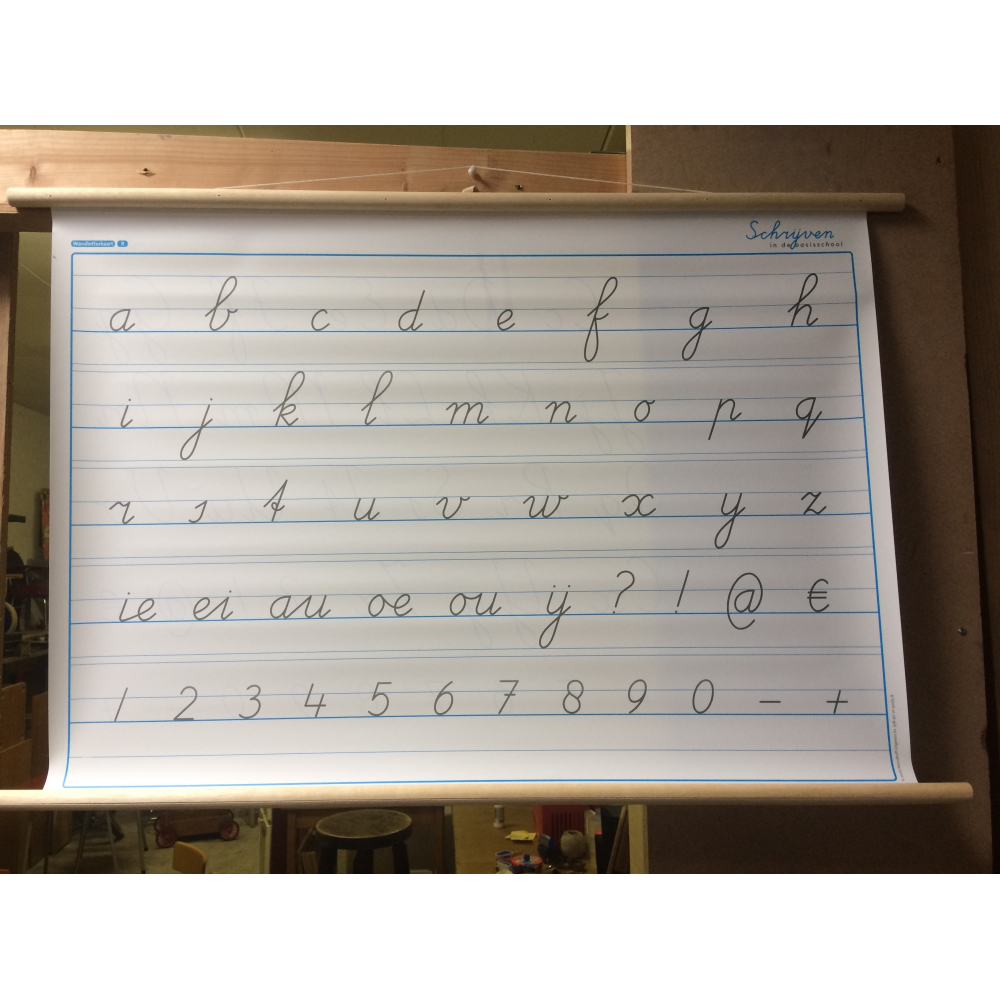 Wandletterkaart R
Schrijven
in de basisschool
a b c d e f g h
i j k l m n o p q
r s t u v w x y z
ie ei au oe ou ij ? ! @ €
1 2 3 4 5 6 7 8 9 0 – +